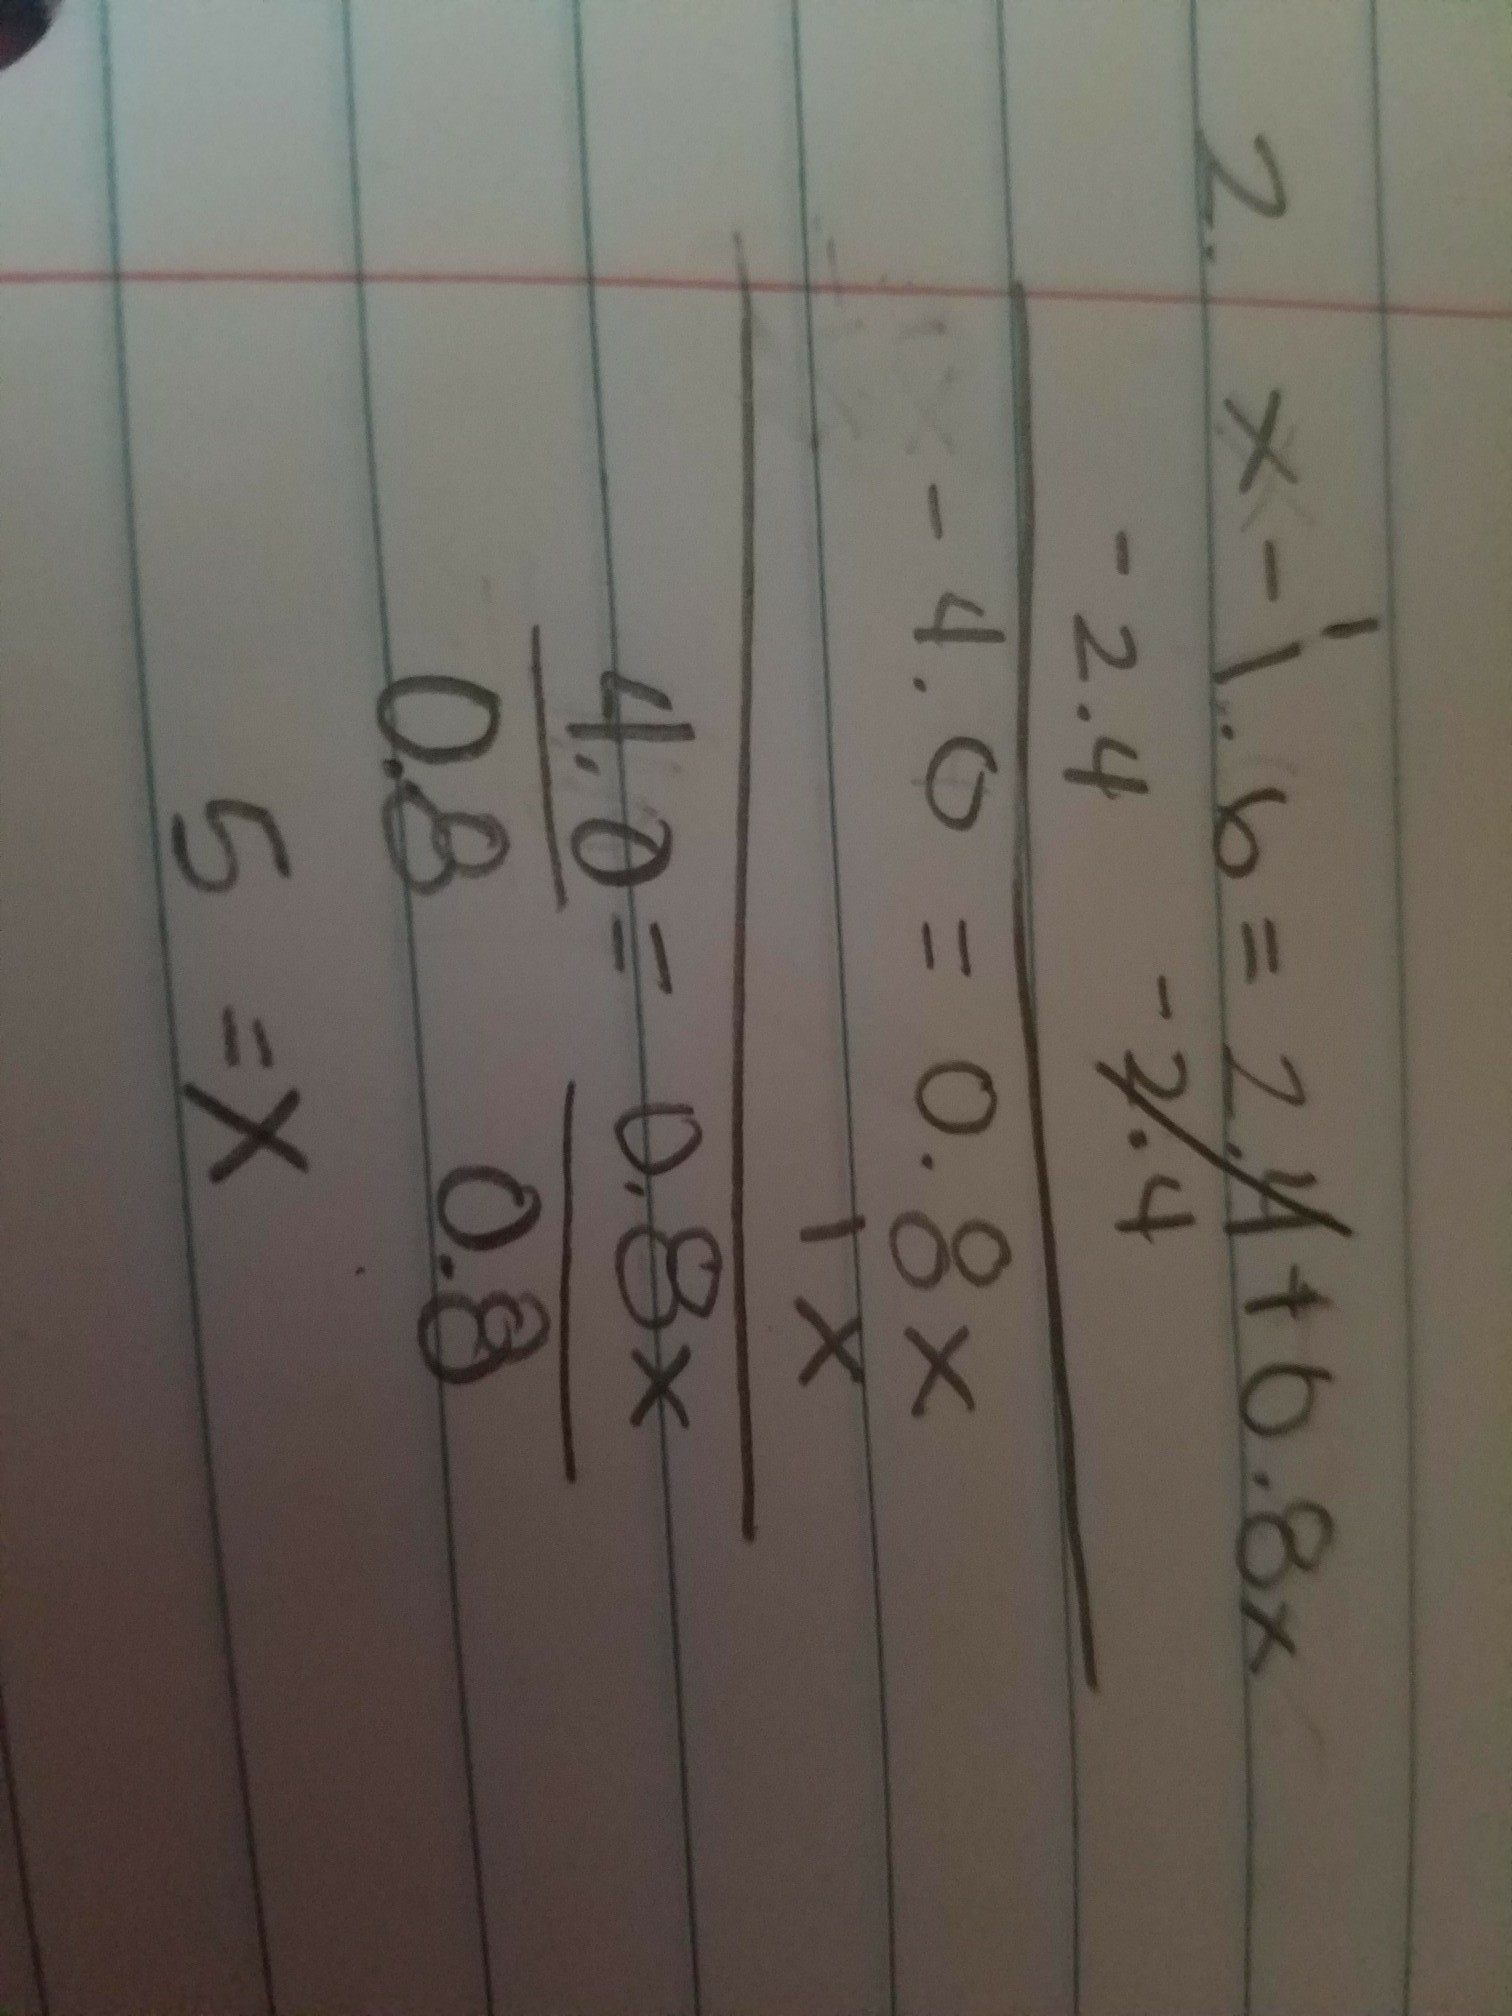 2. x - 1.6 = 2.4 + 0.8x
- 2.4 - 2.4
- 4.0 = 0.8x
1x
4.0 = 0.8x
0.8 0.8
5 = x